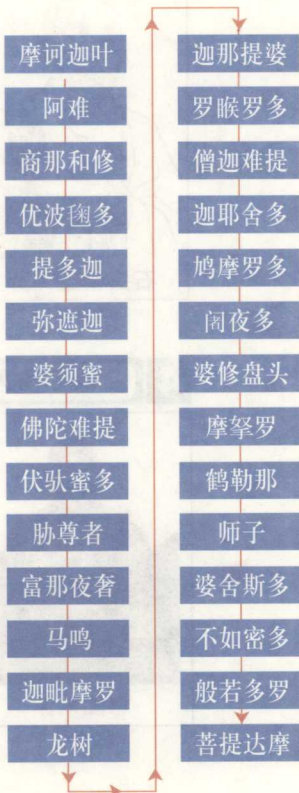 摩诃迦叶
阿难
商那和修
优波毱多
提多迦
弥遮迦
婆须蜜
佛陀难提
伏驮蜜多
胁尊者
富那夜奢
马鸣
迦毗摩罗
龙树
迦那提婆
罗睺罗多
僧迦难提
迦耶舍多
鸠摩罗多
阇夜多
婆修盘头
摩拏罗
鹤勒那
师子
婆舍斯多
不如密多
般若多罗
菩提达摩